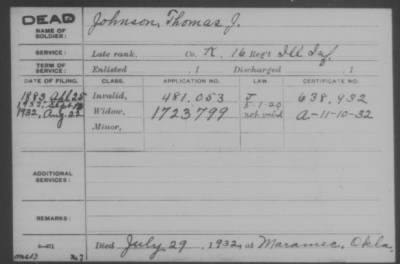 DEAD
NAME OF SOLDIER:
Johnson, Thomas J.
SERVICE:
Late rank, Co. K, 16 Reg't Ill Inf.
TERM OF SERVICE:
Enlisted , 1 Discharged , 1
DATE OF FILING. CLASS. APPLICATION NO. LAW. CERTIFICATE NO.
1883, Apl 25 Invalid, 481.053 J 638,932
5-1-20
1932, Aug 22 Widow, 1723799 not valid A-11-10-32
Minor,
ADDITIONAL SERVICES:
REMARKS:
Died July 29, 1932, at Maramec, Okla.